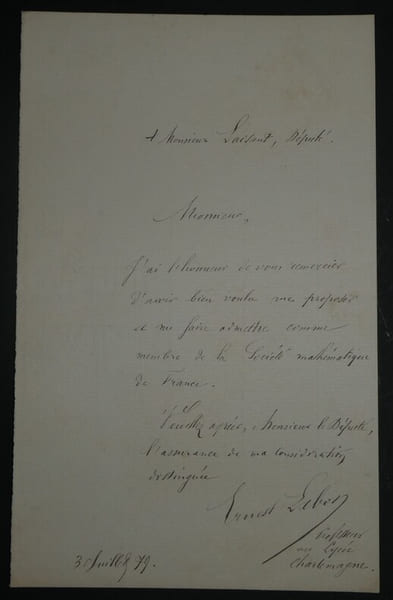 A Monsieur Laisant, Député.
Monsieur,
J'ai l'honneur de vous remercier
d'avoir bien voulu me proposer
et me faire admettre comme
membre de la Société mathématique
de France.
Veuillez agréer, Monsieur le Député,
l'assurance de ma considération
distinguée
Ernest Lebon
Professeur
au Lycée
Charlemagne.
Juillet 79.